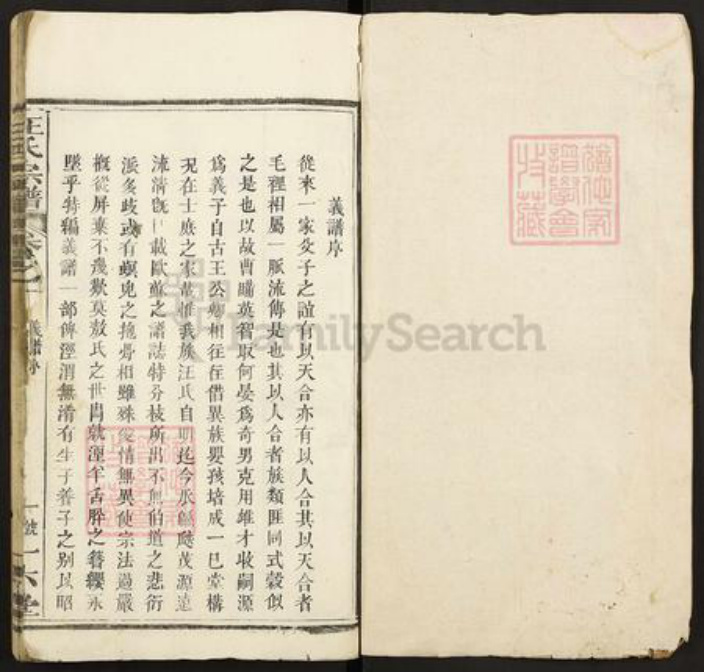 義譜序
從來一家父子之誼有以天合亦有以人合其以天合者
毛裡相屬一脈流傳是也其以人合者族類匪同式穀似
之是也以故曹瞞英智取何晏爲奇男克用雄才收嗣源
爲義子自古王公卿相往往借異族嬰孩培成一己堂構
況在士庶之家故惟我族汪氏自明迄今瓜瓞茂源遠
流清旣載歐蘇之譜誌特分枝所出不無伯道之悲衍
派多歧或有螟兒之抱骨相雖殊恩情無異使宗法過嚴
概從屏棄不幾歎莫敖氏之世冑就湮羊舌肸之簪纓永
墜乎特編義譜一部俾涇渭無淆有生子養子之别以昭
汪氏宗譜
卷之一
義譜序
一號
一六堂
譜學會
收藏
FamilySearch